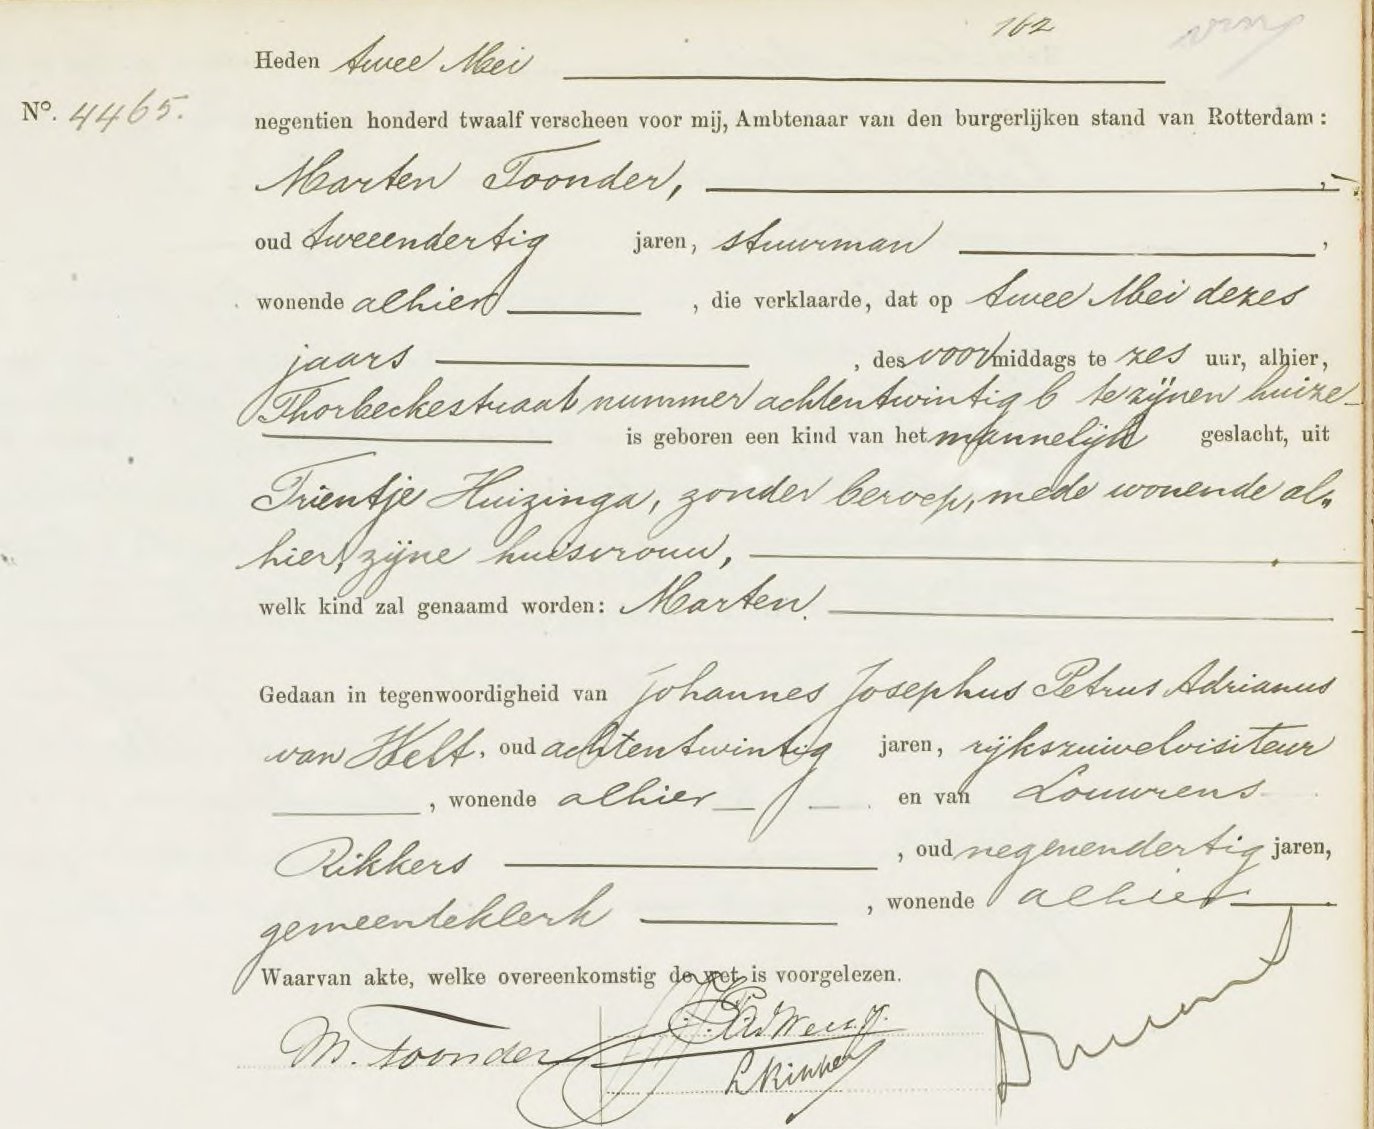 162
Heden twee Mei
No. 4465.
negentien honderd twaalf verscheen voor mij, Ambtenaar van den burgerlijken stand van Rotterdam:
Marten Toonder,
oud tweeendertig jaren, stuurman ,
wonende alhier , die verklaarde, dat op twee Mei dezes
jaars , des voormiddags te zes uur, alhier,
Thorbeckestraat nummer achtentwintig b te zijnen huize
is geboren een kind van het mannelijk geslacht, uit
Trientje Huizinga, zonder beroep, mede wonende al„
hier, zijne huisvrouw,
welk kind zal genaamd worden: Marten.
Gedaan in tegenwoordigheid van Johannes Josephus Petrus Adrianus
van Welt, oud achtentwintig jaren, rijkszuivelvisiteur
, wonende alhier en van Louwrens
Rikkers , oud negenendertig jaren,
gemeenteklerk , wonende alhier
Waarvan akte, welke overeenkomstig de wet is voorgelezen.
M. Toonder
L Rikkers